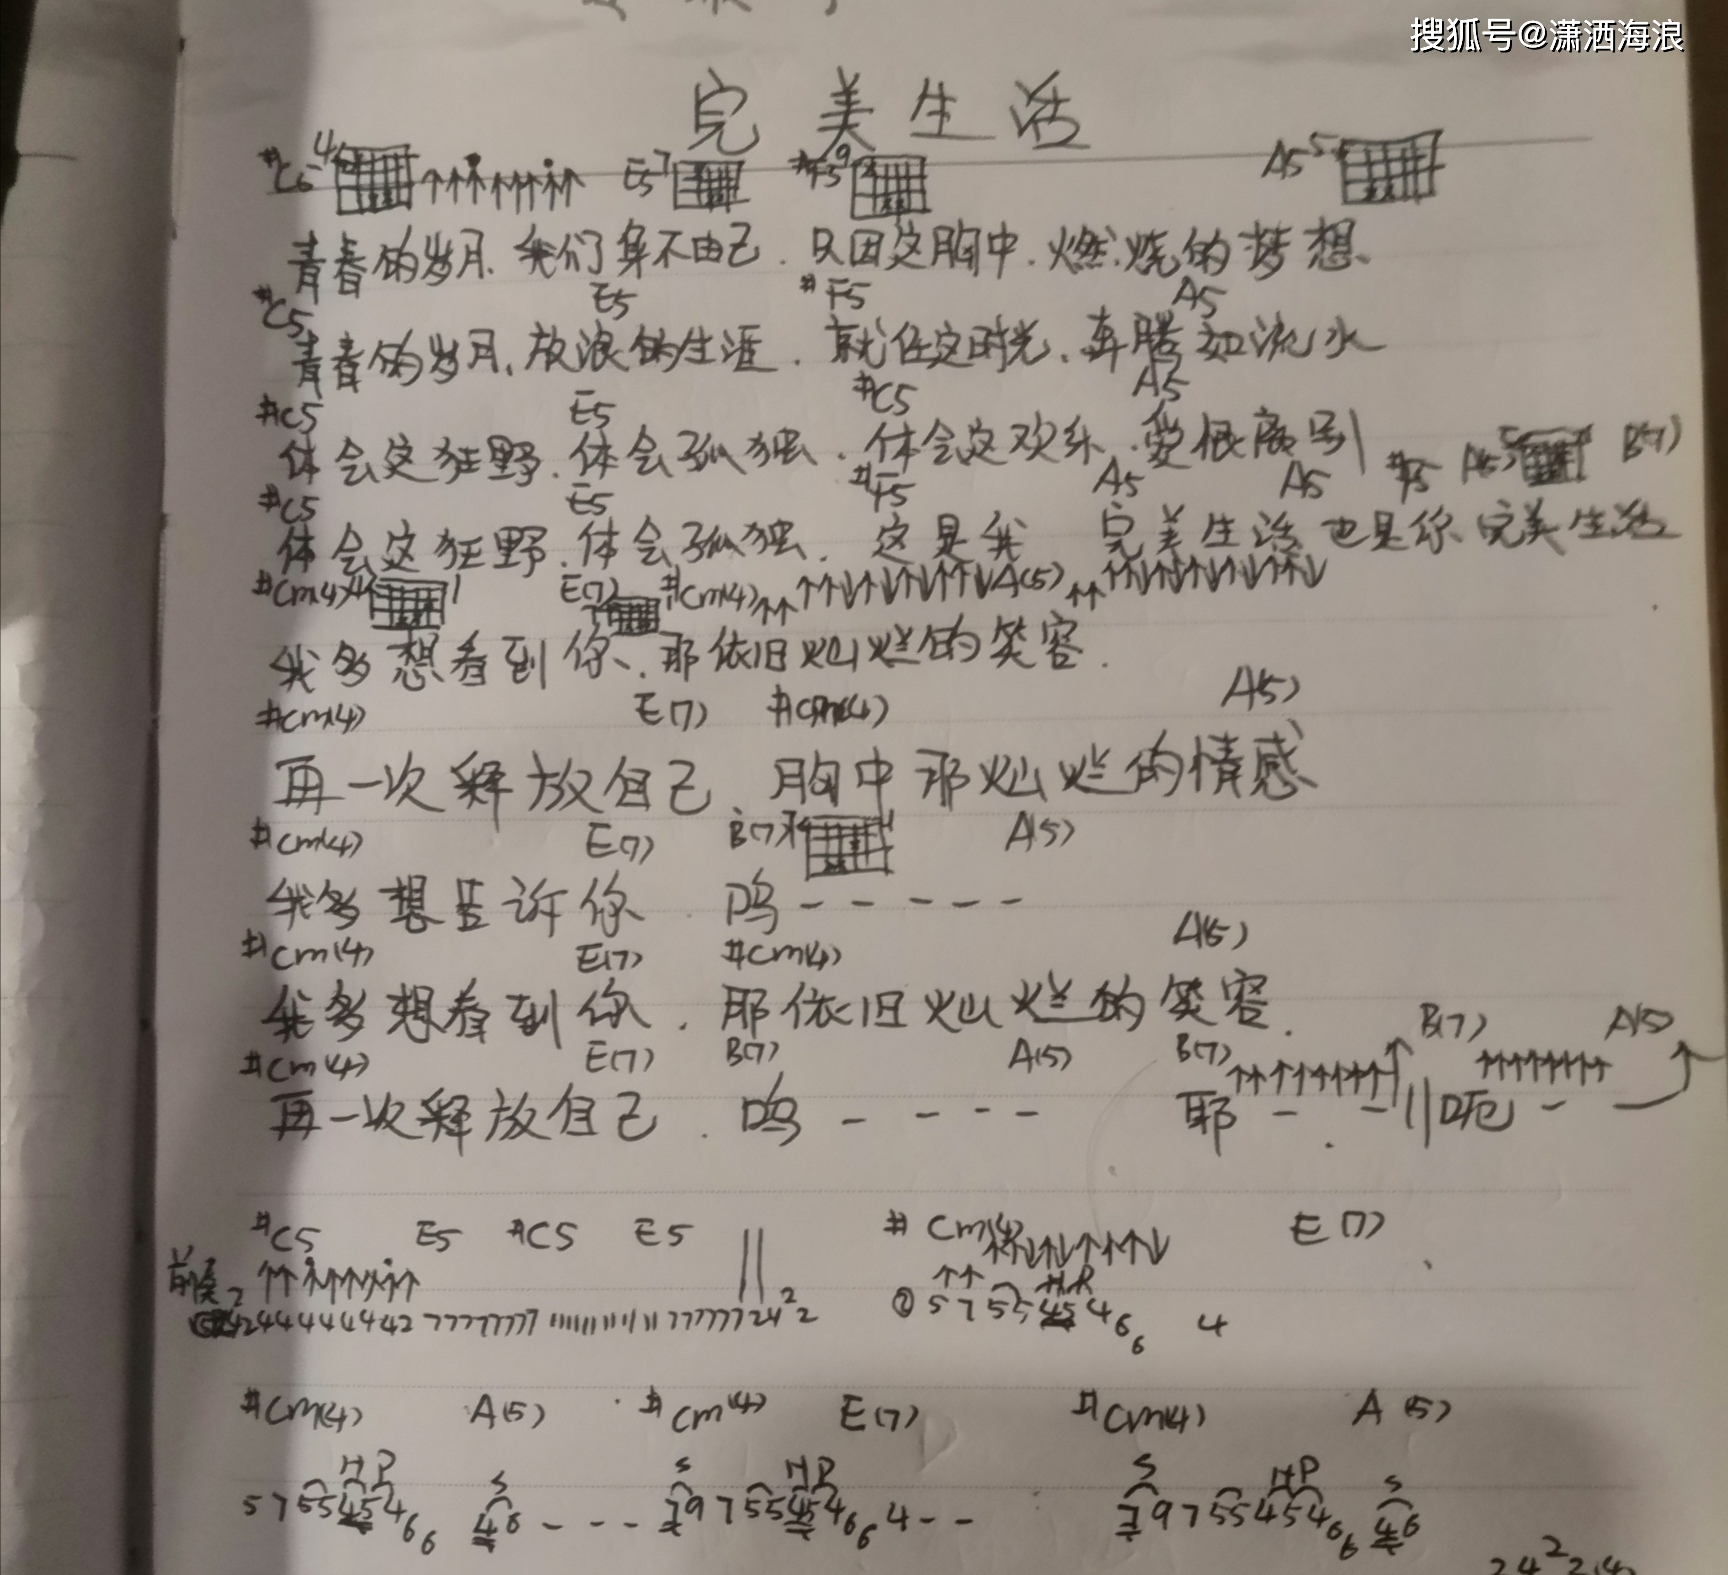 搜狐号@潇洒海浪
完美生活
#C5 4 E5 7 #F5 9 A5 5
青春的岁月、我们身不由己、只因这胸中、燃烧的梦想、
#C5 E5 #F5 A5
青春的岁月、放浪的生涯、就任这时光、奔腾如流水
#C5 E5 #C5 A5
体会这狂野、体会孤独、体会这欢乐、爱恨离别
#C5 E5 #F5 A5 A5 #F5 A(5) B(7)
体会这狂野、体会孤独、这是我 完美生活 也是你完美生活
#Cm(4) E(7) #Cm(4) A(5)
我多想看到你、那依旧灿烂的笑容.
#Cm(4) E(7) #Cm(4) A(5)
再一次释放自己、胸中那灿烂的情感
#Cm(4) E(7) B(7) A(5)
我多想告诉你. 呜-----
#Cm(4) E(7) #Cm(4) A(5)
我多想看到你. 那依旧灿烂的笑容.
#Cm(4) E(7) B(7) A(5) B(7) B(7) A(5)
再一次释放自己. 呜---- 耶--||呃--
#C5 E5 #C5 E5 || #Cm(4) E(7)
前奏
② 5 7 5 5 4 5 4 6 6 4
#Cm(4) A(5) #Cm(4) E(7) #Cm(4) A(5)
H P S S H P S H P S
5 7 5 5 4 5 4 6 6 4 6 --- 7 9 7 5 5 4 5 4 6 6 4-- 7 9 7 5 5 4 5 4 6 6 4 6